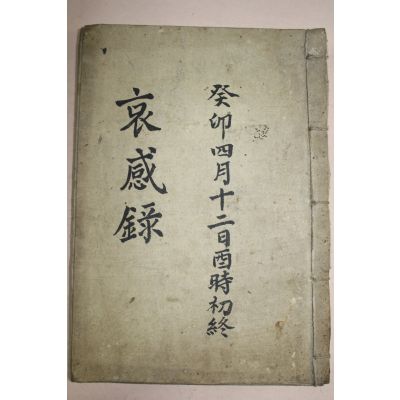 癸卯四月十二日酉時初終
哀感錄